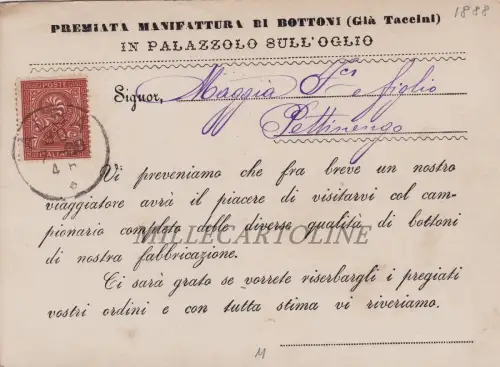 1888
PREMIATA MANIFATTURA DI BOTTONI (Già Taccini)
IN PALAZZOLO SULL'OGLIO
Signor, Maggia Fcs e figlio
Pettinengo
POSTE
ITALIANE
4
Vi preveniamo che fra breve un nostro
viaggiatore avrà il piacere di visitarvi col cam-
pionario completo delle diverse qualità di bottoni
MILLECARTOLINE
di nostra fabbricazione.
Ci sarà grato se vorrete riserbargli i pregiati
vostri ordini e con tutta stima vi riveriamo.
M